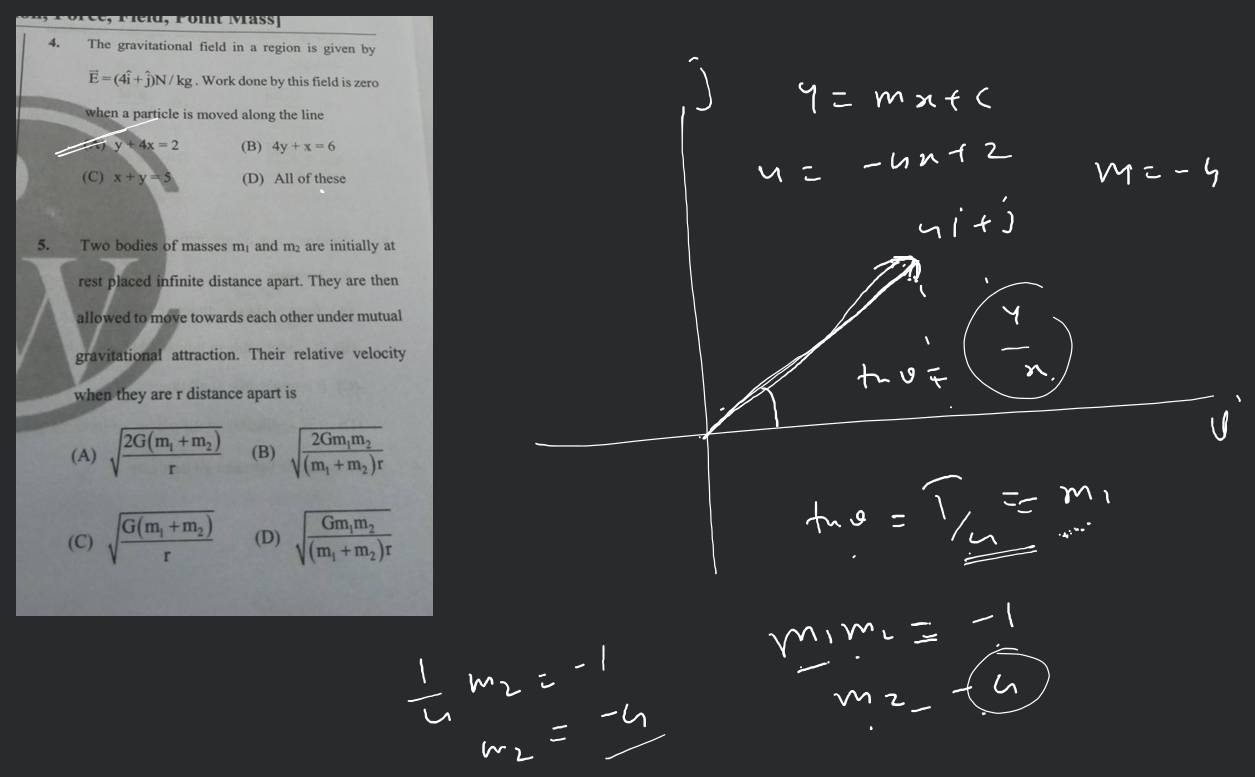 on, Force, Field, Point Mass]
4. The gravitational field in a region is given by
E⃗=(4î+ĵ)N/kg. Work done by this field is zero
when a particle is moved along the line
y + 4x = 2 (B) 4y + x = 6
(C) x + y = 5 (D) All of these
5. Two bodies of masses m₁ and m₂ are initially at
rest placed infinite distance apart. They are then
allowed to move towards each other under mutual
gravitational attraction. Their relative velocity
when they are r distance apart is
(A) √(2G(m₁+m₂)/r) (B) √(2Gm₁m₂/((m₁+m₂)r))
(C) √(G(m₁+m₂)/r) (D) √(Gm₁m₂/((m₁+m₂)r))
j
y = mx + c
y = -4x + 2 m = -4
4i + j
tan θ = y/x
i
tan θ = 1/4 = m₁
m₁m₂ = -1
m₂ = -4
1/4 m₂ = -1
m₂ = -4